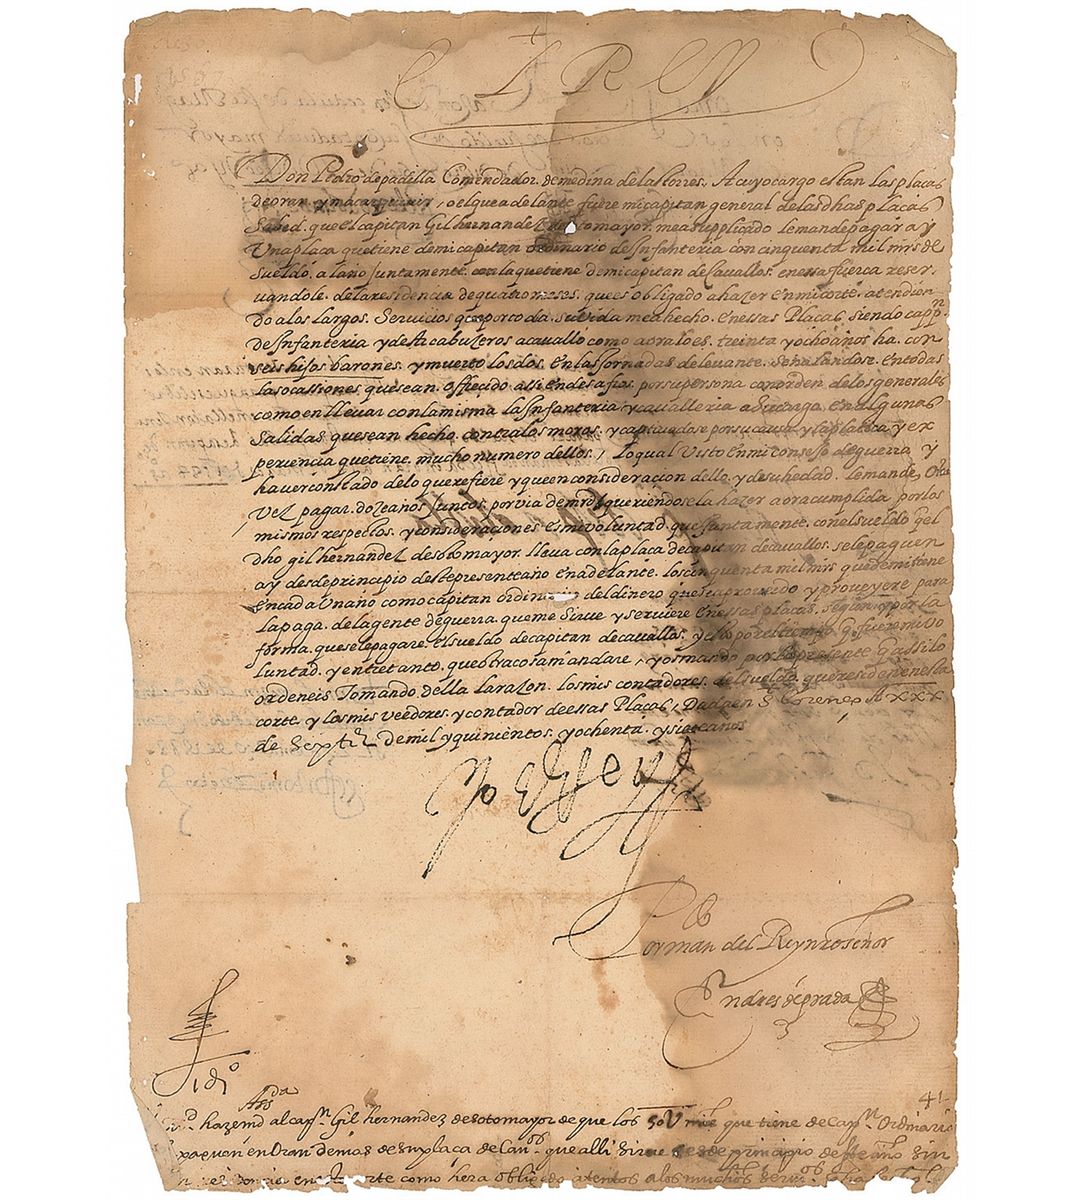 El Rey
Don Pedro depadilla Comendador demedina delastorres, Acuyocargo estan lasplaças
deoran, ymaçarquivir, oelqueadelante fuere micapitan general delasdhas plaças
Sabed. queelcapitan Gil hernandez desotomayor, measupplicado lemandepagar ay
Unaplaça quetiene demicapitan ordinario deInfanteria concinquenta mil mrs de
Sueldo, alaño Juntamente conlaquetiene demicapitan decavallos, enessafuerça reser,
vandole, delaresidencia dequatromeses, quees obligado ahazer enmicorte, atendien
doalos largos, Servicios queportoda, suvida meahecho, enessas Plaças, siendo capn.
deInfanteria ydeArcabuzeros acavallo como aoraloes, treinta yochoaños ha, con
seis hijos barones, ymuertolosdos, enlasjornadas delevante, señalandose, entodas
lasocassiones, quesean, offrecido assi endesafios, porsupersona conorden delosgenerales
como enllevar conlamisma laInfanteria, ycavalleria asucargo, enalgunas
Salidas, quesean hecho, contralos moros, ycaptivadose porsucausa, ylaplatica, yex
periencia quetiene, mucho numero dellos, Loqual Visto enmiconsejo deguerra y
haverconstado deloquerefiere yqueenconsideracion dello, ydesuhedad, lemande, otra
Vez, pagar, dozeaños, Juntos, porvia demrd, queriendosela hazer aoracumplida porlos
mismos respectos, yconsideraciones, esmivoluntad, queJuntamente, conelsueldo qel
dho gil hernandez desotomayor, lleva conlaplaça decapitan decavallos, selepaguen
ay desdeprincipio destepresenteaño enadelante, loscinquenta milmrs quedemitiene
encadaUnaño comocapitan ordinario deldinero quese aproveido yproveyere para
lapaga, delagente deguerra, queme Sirve yserviere enessas plaças, según, ypor la
forma, queselepagare, elsueldo decapitan decavallos, yestoporeltiempo q. fueremivo
luntad, yentretanto, queotracosamandare, yosmando porlapresente, qassilo
ordeneis, Tomando della larazon, losmis contadores, delsueldo queresidenenesta
corte, y losmis veedores, ycontador deessas Plaças, Dadaen S. Lorenço A XXX
de Septre demil yquinientos, yochenta, ysieteaños
Yo el Rey
Por mandº del Rey nro señor
Andres de prada
41
hazemd alcapn Gil hernandez desotomayor de que los 50U mrs que tiene decapn Ordinario
paguen en Oran demas desuplaça decavos quealli sirve desde principio desteaño sin